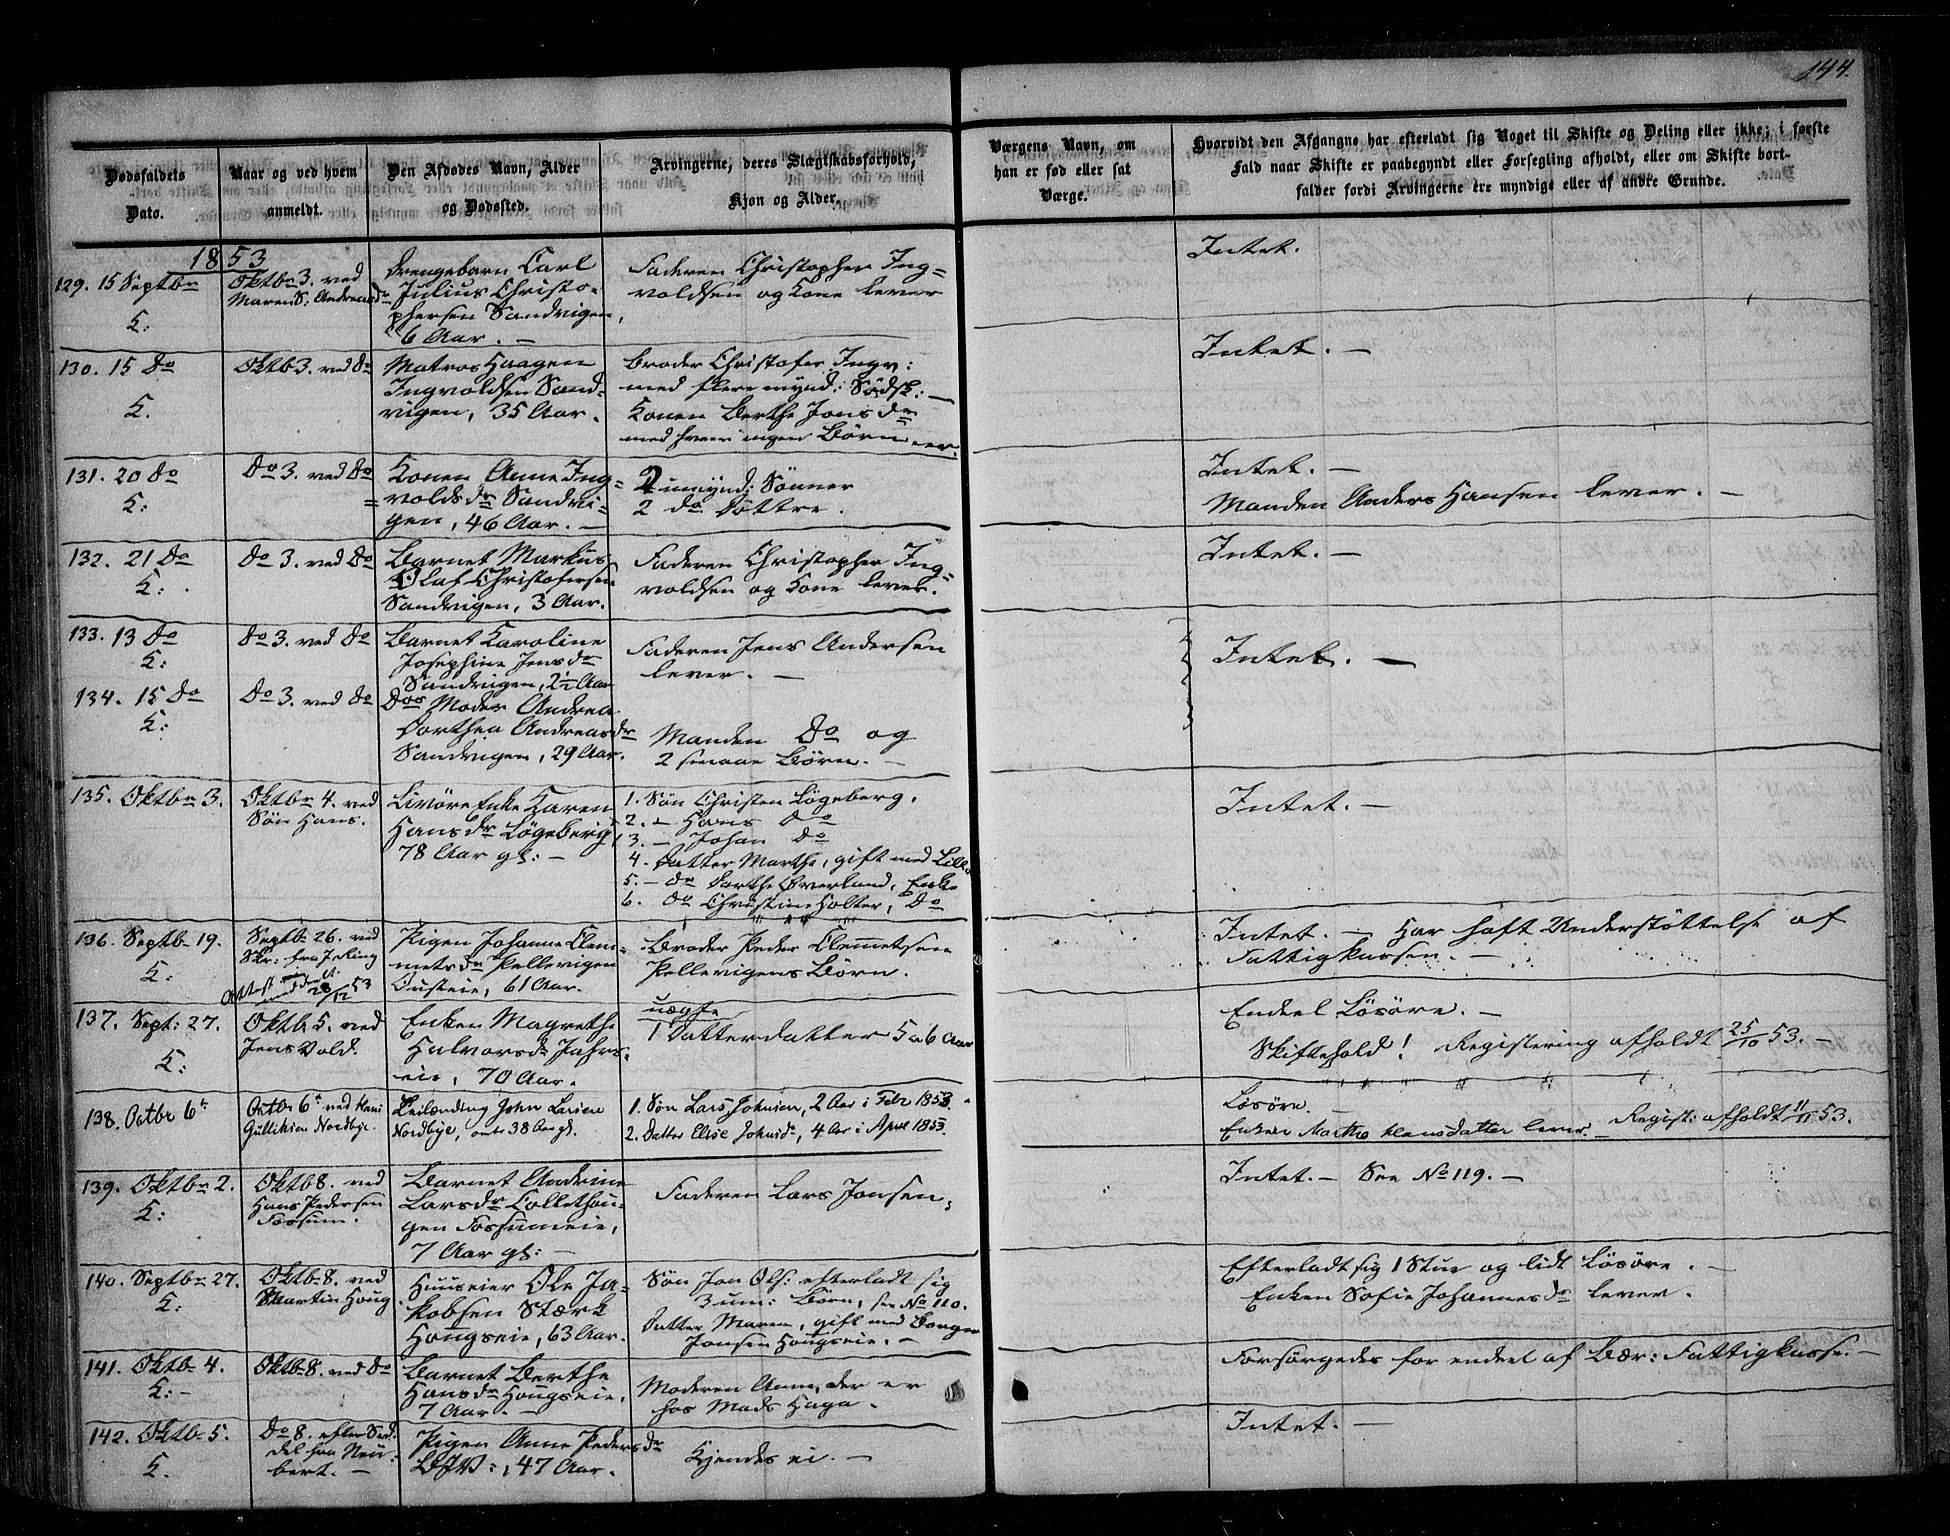 144.
Dødsfaldets
Dato.
Naar og ved hvem
anmeldt.
Den Afdødes Navn, Alder
og Dødssted.
Arvingerne, deres Slægtskabsforhold,
Kjøn og Alder.
Værgens Navn, om
han er fød eller sat
Værge.
Hvorvidt den Afgangne har efterladt sig Noget til Skifte og Deling eller ikke; i første
Fald naar Skifte er paabegyndt eller Forsegling afholdt, eller om Skifte bort-
falder fordi Arvingerne ere myndige eller af andre Grunde.
1853
129. 15 Septbr
K:
Oktbr 3. ved
Maren S: Andreasdr
Drengebarn Carl
Julius Christo-
phersen Sandvigen,
6 Aar. —
Faderen Christopher Ing-
voldsen og Kone lever
Intet.
130. 15 Do
K.
Oktb 3. ved Do
Matros Haagen
Ingvoldsen Sand-
vigen, 35 Aar.
Broder Christofer Ingv:
med flere mynd: Sødsk: —
Konen Berthe Jonsdr
med hvem ingen Børn er.
Intet. —
131. 20 Do
K:
Do 3. ved Do
Konen Anne Ing-
voldsdr Sandvi-
gen, 46 Aar. —
2 umynd: Sønner
2 do Døttre.
Intet. —
Manden Anders Hansen lever. —
132. 21 Do
K:
Do 3. ved Do
Barnet Markus
Olaf Christofersen
Sandvigen, 3 Aar.
Faderen Christopher Ing-
voldsen og Kone lever.
Intet. —
133. 13 Do
K:
Do 3. ved Do
Barnet Karoline
Josephine Jensdr
Sandvigen, 2½ Aar
Faderen Jens Andersen
lever. —
Intet. —
134. 15 Do
K:
Do 3. ved Do
Dos Moder Andrea
Dorthea Andreasdr
Sandvigen, 29 Aar.
Manden Do og
2 smaae Børn. —
135. Oktbr 3.
Oktbr 4. ved
Søn Hans.
Enke Karen
Hansdr Løgeberg,
78 Aar gl: —
1. Søn Christen Løgeberg.
2. — Hans Do
3. — Johan Do
4. Datter Marthe, gift med
5. — do Dorthe Øverland, Enke
6. do Christine Holter, Do
Intet. —
136. Septb 19.
K:
Septb 26. ved
Skr: fra J. Ring
Attest
meddelt
28/12 53
Pigen Johanne Clem-
metsdr Pellevigen
61 Aar.
Broder Peder Clemetsen
Pellevigens Børn.
Intet. — Har haft Understøttelse af
Fattigkassen. —
137. Sept: 27.
K:
Oktb 5. ved
Jens Vold.
Enken Magrethe
Halvorsdr Jahrs-
eie, 70 Aar.
uægte
1 Datterdatter 5 a 6 Aar
Endeel Løsøre. —
Skiftehold! Registering afholdt 25/10 53. —
138. Octbr 6te
Octbr 6te ved Hans
Gulliksen Nordbye.
Leilænding John Larsen
Nordbye, omtr 38 Aar gl.
1. Søn Lars Johnsen, 2 Aar i Febr 1853.
2. Datter Elise Johnsdr, 4 Aar i April 1853.
Løsøre.
Enken Marthe Hansdatter lever. — Regist: afholdt 11/11 53.
139. Oktbr 2.
K:
Oktb 8. ved
Hans Pedersen
Fossum.
Barnet Andrine
Larsdr Colletthou-
gen Fossumeie,
7 Aar gl: —
Faderen Lars Jonsen.
Intet. — See No 119. —
140. Septbr 27.
K:
Oktb 8. ved
Martin Houg
Huuseier Ole Ja-
kobsen Stærk
Hougseie, 63 Aar.
Søn Jon Ols: efterladt sig
3 um: Børn, see No 110.
Datter Maren, gift med
Jonsen Hougseie. —
Efterladt sig 1 Stue og lidt Løsøre. —
Enken Sofie Johannesdr lever.
141. Oktb 4.
K: —
Oktb 8. ved Do
Barnet Berthe
Hansdr Hougseie,
7 Aar. —
Moderen Anne, der er
hos Mads Haga.
Forsørgedes for endeel af Bær: Fattigkasse. —
142. Oktb 5.
K.
Do 8. efter Sed-
del fra Neu-
bert. —
Pigen Anne Pedersdr
47 Aar.
Kjendes ei. —
Intet. —